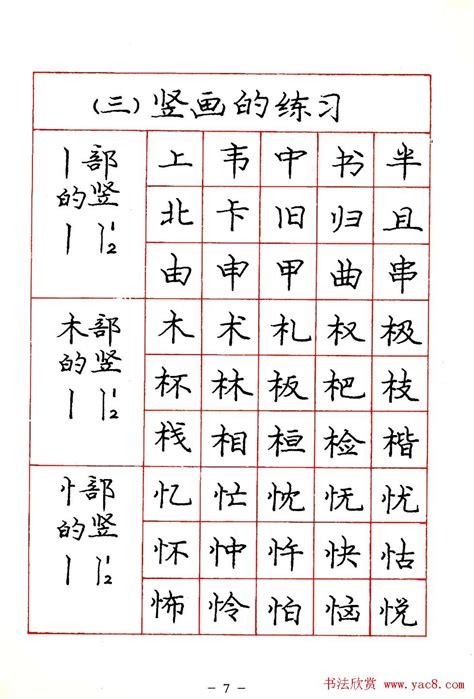 (三)竖画的练习
丨部的竖
丨
上韦中书半
北卡旧归且
由申甲曲串
木部的竖
丨
木术札权极
杯林板杷枝
栈相桓检楷
忄部的竖
丨
忆忙忱怃忧
怀忡忤快怙
怖怜怕恼悦
- 7 -
书法欣赏 www.yac8.com